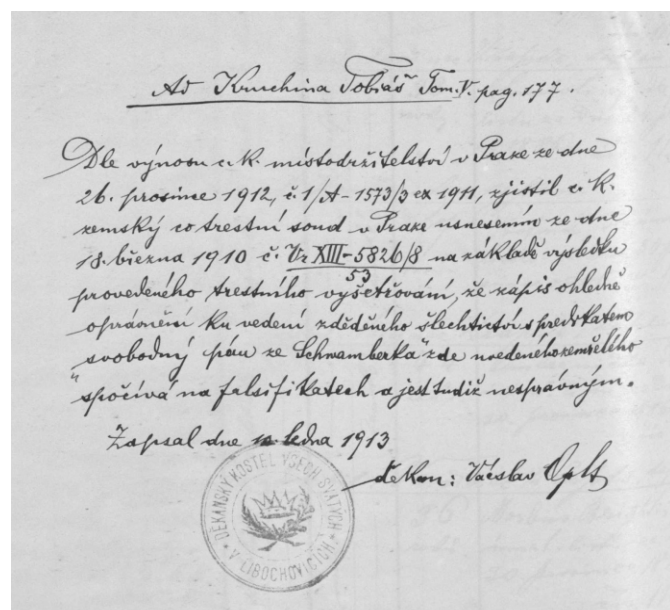 Ad Kruschina Tobiáš Tom. V. pag. 177.
Dle výnosu c. k. místodržitelství v Praze ze dne
26. prosince 1912, č. 1/A - 1573/3 ex 1911, zjistil c. k.
zemský co trestní soud v Praze usnesením ze dne
18. března 1910 č. Vr XIII - 5826/8 na základě výsledku
53
provedeného trestního vyšetřování, že zápis ohledně
oprávnění ku vedení zděděného šlechtictví s predikatem
"svobodný pán ze Schwamberka" zde uvedeného zemřelého
spočívá na falsifikatech a jest tudíž nesprávným.
Zapsal dne ledna 1913
děkan: Václav Oplt
DĚKANSKÝ KOSTEL VŠECH SVATÝCH
V LIBOCHOVICÍCH